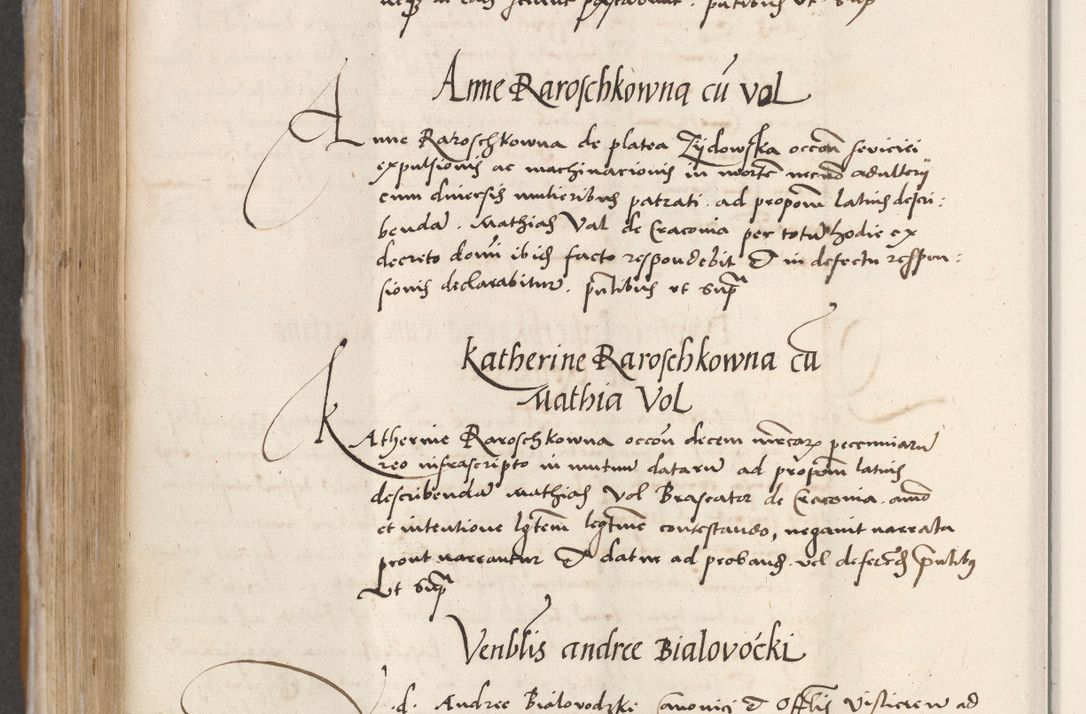 Anne Raroschkowna cū vol
Anne Raroschkowna de platea Zydowska occōn seviciei
expulsionis ac machinacionis in mortē necnō adulterii
cum diversis mulieribus patrati . ad propoem latius descri:
benda . Mathias Val de Cracovia per totū hodie ex
decreto domi ibid facto respondebit & in defectu respon:
sionis declarabitur . pntibus vt supra
Katherine Raroschkowna cū
Mathia Vol
Katherine Raroschkowna occōn decem mrcarz pecuniarū
reo infrascripto in mutuum datarū ad propoem latius
describendā Mathias Vol Braseator de Cracovia . anīo
et intentione lytem legtime contestando, negavit narrata
prout narrantur & datur ad proband . vel deferend pntibus
vt supra
Venblis andree Bialovocki
d. Andree Bialovodzki canonici & Offlis